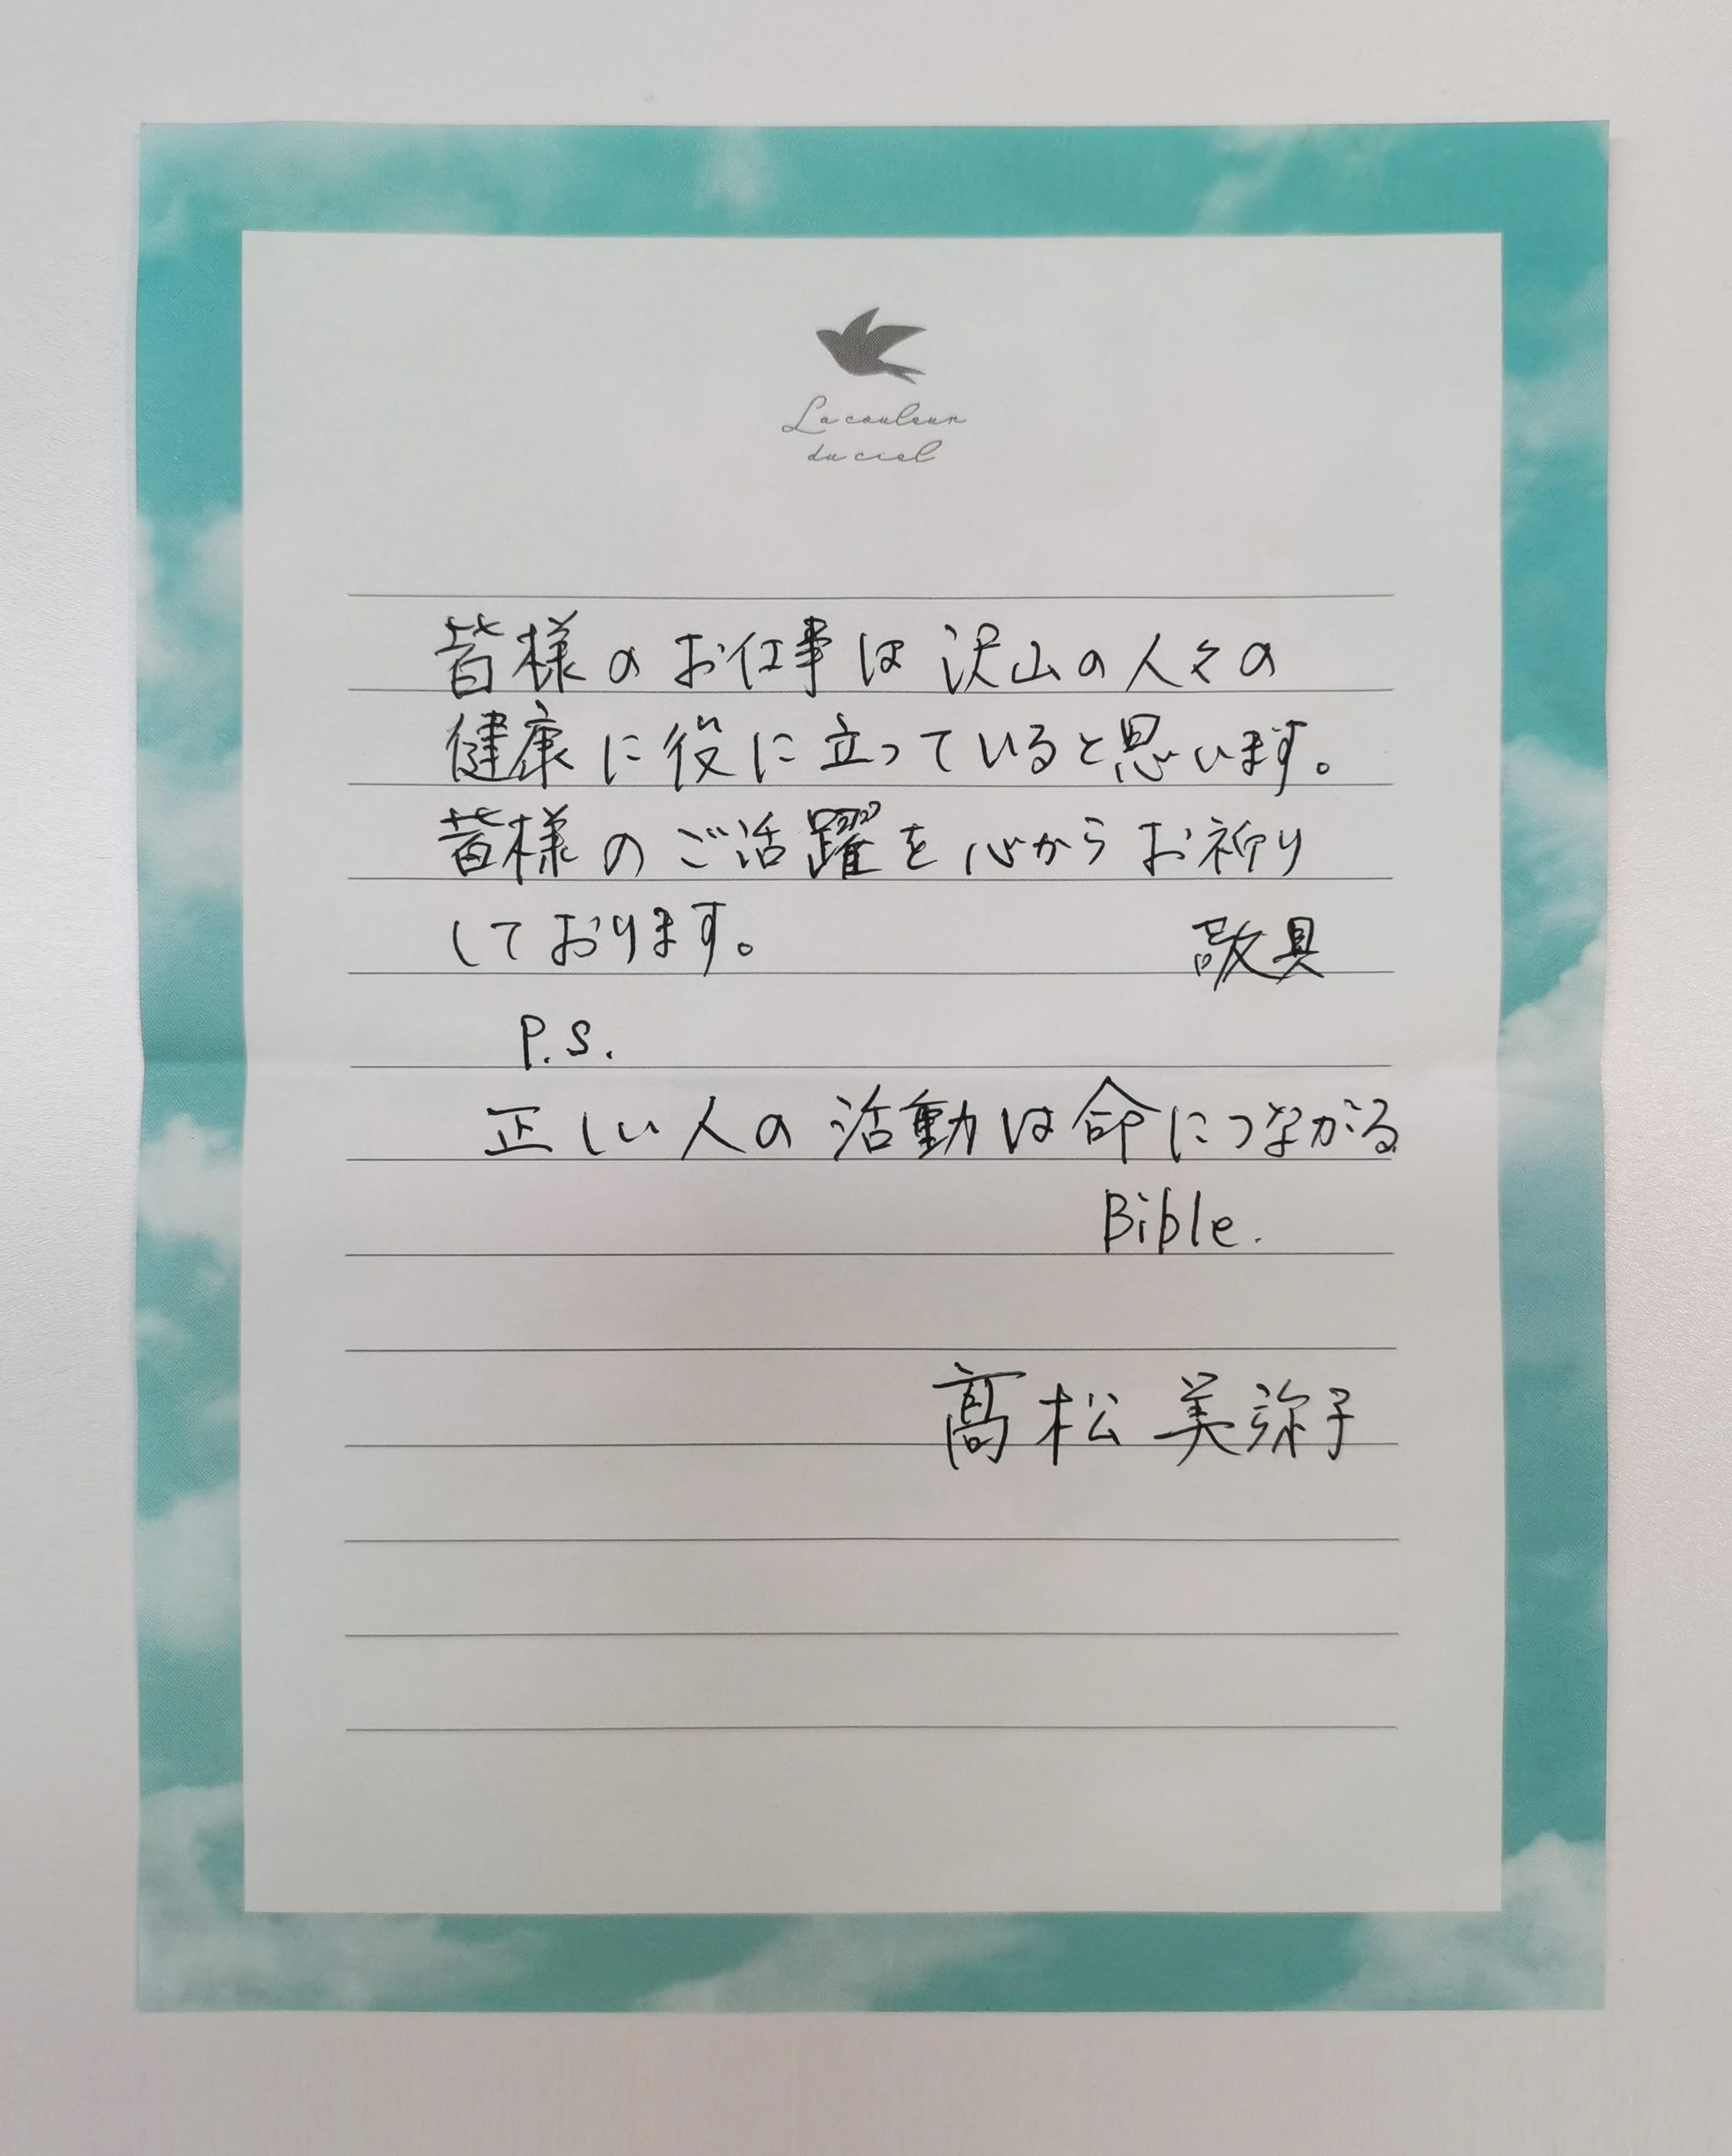 La couleur
du ciel
皆様のお仕事は沢山の人々の
健康に役に立っていると思います。
皆様のご活躍を心からお祈り
しております。 敬具
P.S.
正しい人の活動は命につながる
Bible.
髙松 美弥子